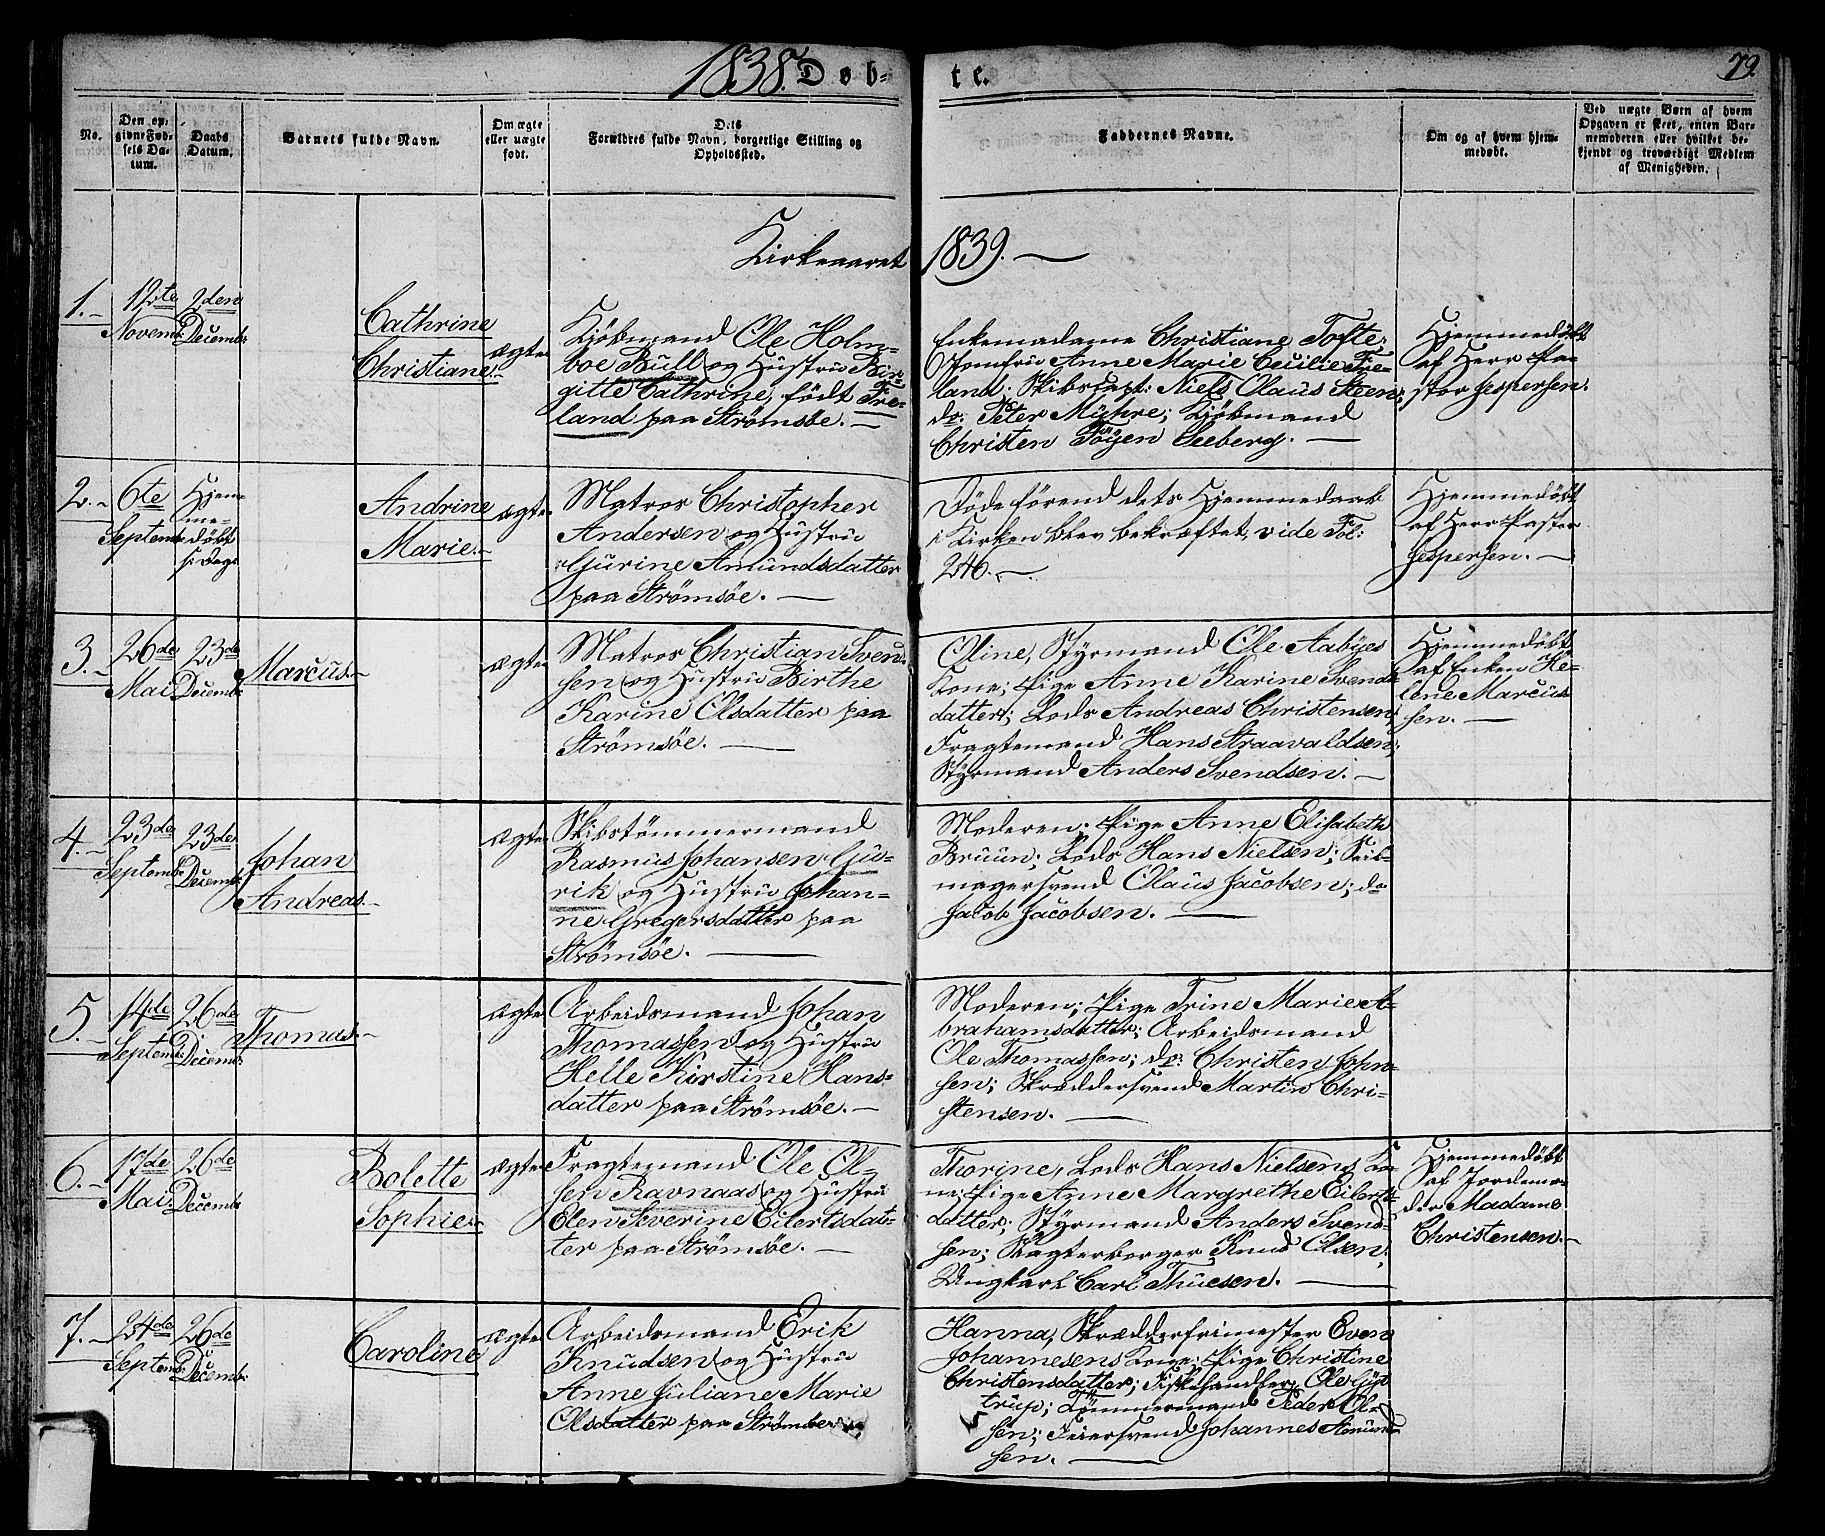 1838. Døb-
te.
79.
No.
Den opgivne Fødsels Datum.
Daabs Datum.
Barnets fulde Navn.
Om ægte eller uægte født.
Dets Forældres fulde Navn, borgerlige Stilling og Opholdssted.
Faddernes Navne.
Om og af hvem hjemmedøbt.
Ved uægte Børn af hvem Opgaven er skeet, enten Barnemoderen eller hvilket bekjendt og troværdigt Medlem af Menigheden.
Kirkeaaret 1839.
1.
12te Novemb:
2den Decemb:
Cathrine
Christiane.
ægte
Kjöbmand Ole Holm-
boe Bull og Hustru Bir-
gitte Cathrine, födt Fre-
land paa Strömsöe.
Enkemadame Christiane Tofte;
Jomfru Anne Marie Cecilie Fre-
land; Skibscapt: Niels Claus Steen;
do: Peter Myhre; Kjöbmand
Christen Föyen Seeberg.
Hjemmedöbt
af Herr Pa-
stor Jespersen.
2.
6te Septemb:
Hjem-
me-
döbt
s: Dag.
Andrine
Marie.
ægte
Matros Christopher
Andersen og Hustru
Gurine Amundsdatter
paa Strömsöe.
Döde förend dets Hjemmedaab
i Kirken blev bekræftet, vide Fol:
246.
Hjemmedöbt
af Herr Pastor
Jespersen.
3.
26de Mai
23de Decemb:
Marcus.
ægte
Matros Christian Sven-
sen og Hustru Birthe
Karine Olsdatter paa
Strömsöe.
Oline, Styrmand Ole Aabyes
Kone; Pige Anne Karine Svends-
datter; Lods Andreas Christensen;
Fragtemand Hans Straavaldsen;
Styrmand Anders Svendsen.
Hjemmedöbt
af Enken He-
lene Marcus-
sen.
4.
23de Septemb:
23de Decemb:
Johan
Andreas.
ægte
Skibstömmermand
Rasmus Johansen Gu-
rik og Hustru Johan-
ne Gregersdatter paa
Strömsöe.
Moderen; Pige Anne Elisabeth
Bruun; Lods Hans Nielsen; Reib-
magersvend Olaus Jacobsen; do
Jacob Jacobsen.
5.
14de Septemb:
26de Decemb:
Thomas.
ægte
Arbeidsmand Johan
Thomassen og Hustru
Helle Kirstine Hans-
datter paa Strömsöe.
Moderen; Pige Trine Marie A-
brahamsdatter; Arbeidsmand
Ole Thomassen; do: Christen John-
sen; Skræddersvend Martin Chri-
stensen.
6.
17de Mai
26de Decemb:
Bolette
Sophie.
ægte
Fragtemand Ole Ol-
sen Ravnaas og Hustru
Elen Severine Eilertsdat-
ter paa Strömsöe.
Thorine, Lods Hans Nielsens Ko-
ne; Pige Anne Margrethe Eilerts-
datter; Styrmand Anders Svend-
sen; Slagterborger Knud Olsen;
Ungkarl Carl Thuesen.
Hjemmedöbt
af Jordemo-
der Madame
Christensen.
7.
24de Septemb:
26de Decemb:
Caroline
ægte
Arbeidsmand Erik
Knudsen og Hustru
Anne Juliane Marie
Olsdatter paa Strömsöe
Hanna, Skrædderfrimester Even
Johannesens Kone; Pige Christine
Christensdatter; Fiskehandler Ole Gyt-
trup; Tömmermand Peder Ol-
sen; Feiersvend Johannes Amund-
sen.